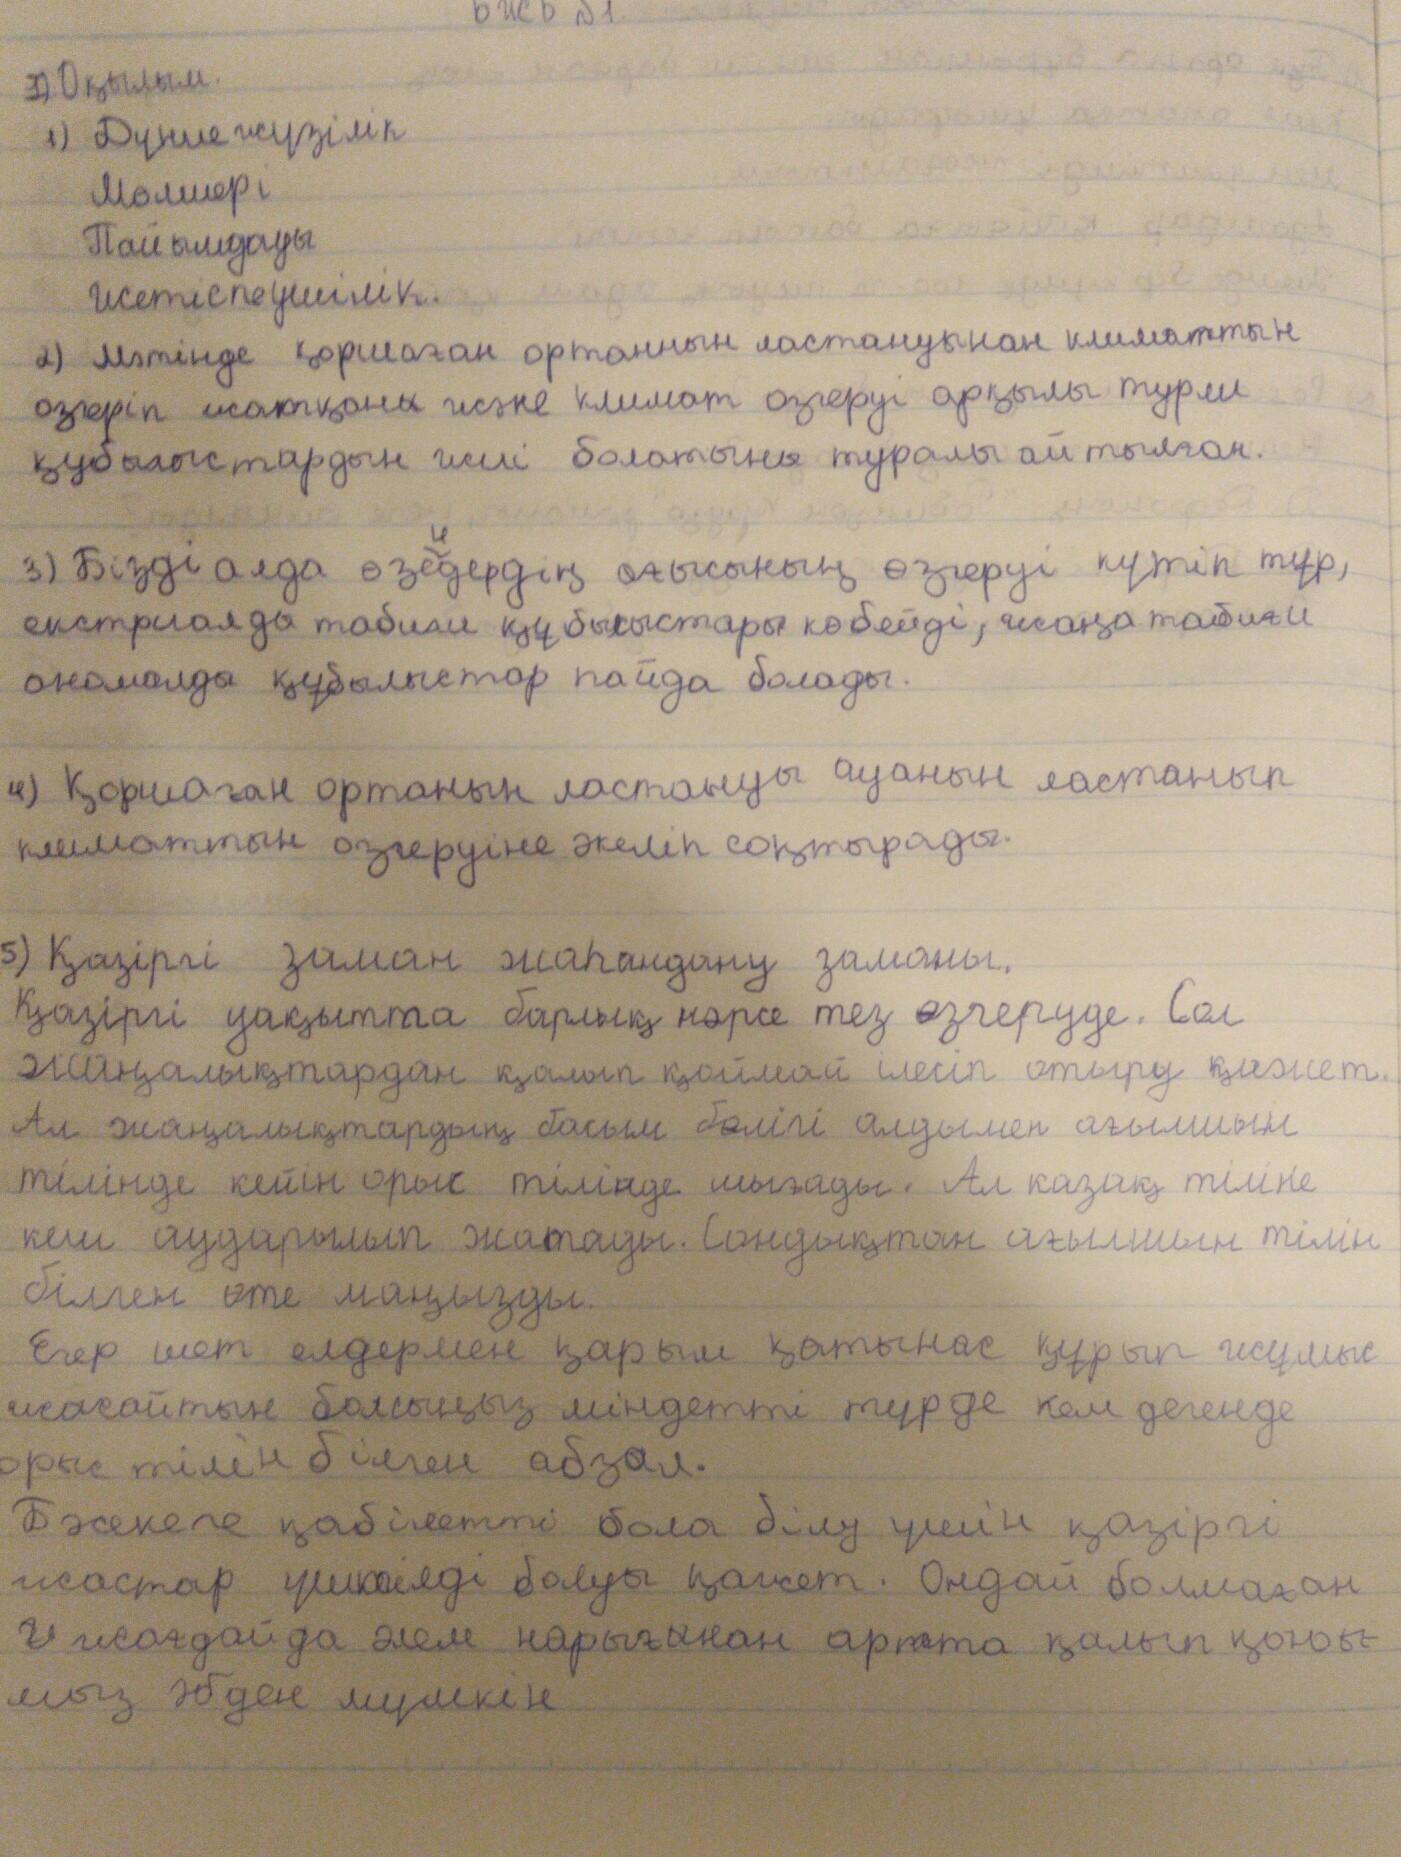 БЖБ №1
1) Оқылым.
1) Дүниежүзілік
Мөлшері
Пайымдауы
Жетіспеушілік.
2) Мәтінде қоршаған ортаннын ластануынан климаттын
озгеріп жатқаны және климат озгеруі арқылы турли
құбылыстардын жиі болатыны туралы айтылған.
3) Бізді алда өзендердің ағысының өзгеруі күтіп тұр,
екстриалды табиғи құбылыстары көбейді, жаңа табиғи
аномалды құбылыстар пайда болады.
4) Қоршаған ортанын ластануы ауанын ластанып
климаттын озгеруіне әкеліп соқтырады.
5) Қазіргі заман жаһандану заманы.
Қазіргі уақытта барлық нәрсе тез өзгеруде. Сол
жаңалықтардан қалып қоймай ілесіп отыру қажет.
Ал жаңалықтардың басым бөлігі алдымен ағылшын
тілінде кейін орыс тілінде шығады. Ал казақ тіліне
кеш аударылып жатады. Сондықтан ағылшын тілін
білген өте маңызды.
Егер шет елдермен қарым қатынас құрып жұмыс
жасайтын болсыңыз міндетті түрде кем дегенде
орыс тілін білген абзал.
Бәсекеге қабілетті бола білу үшін қазіргі
жастар үштілді болуы қажет. Ондай болмаған
жағдайда әлем нарығынан артта қалып қоюы-
мыз әбден мүмкін